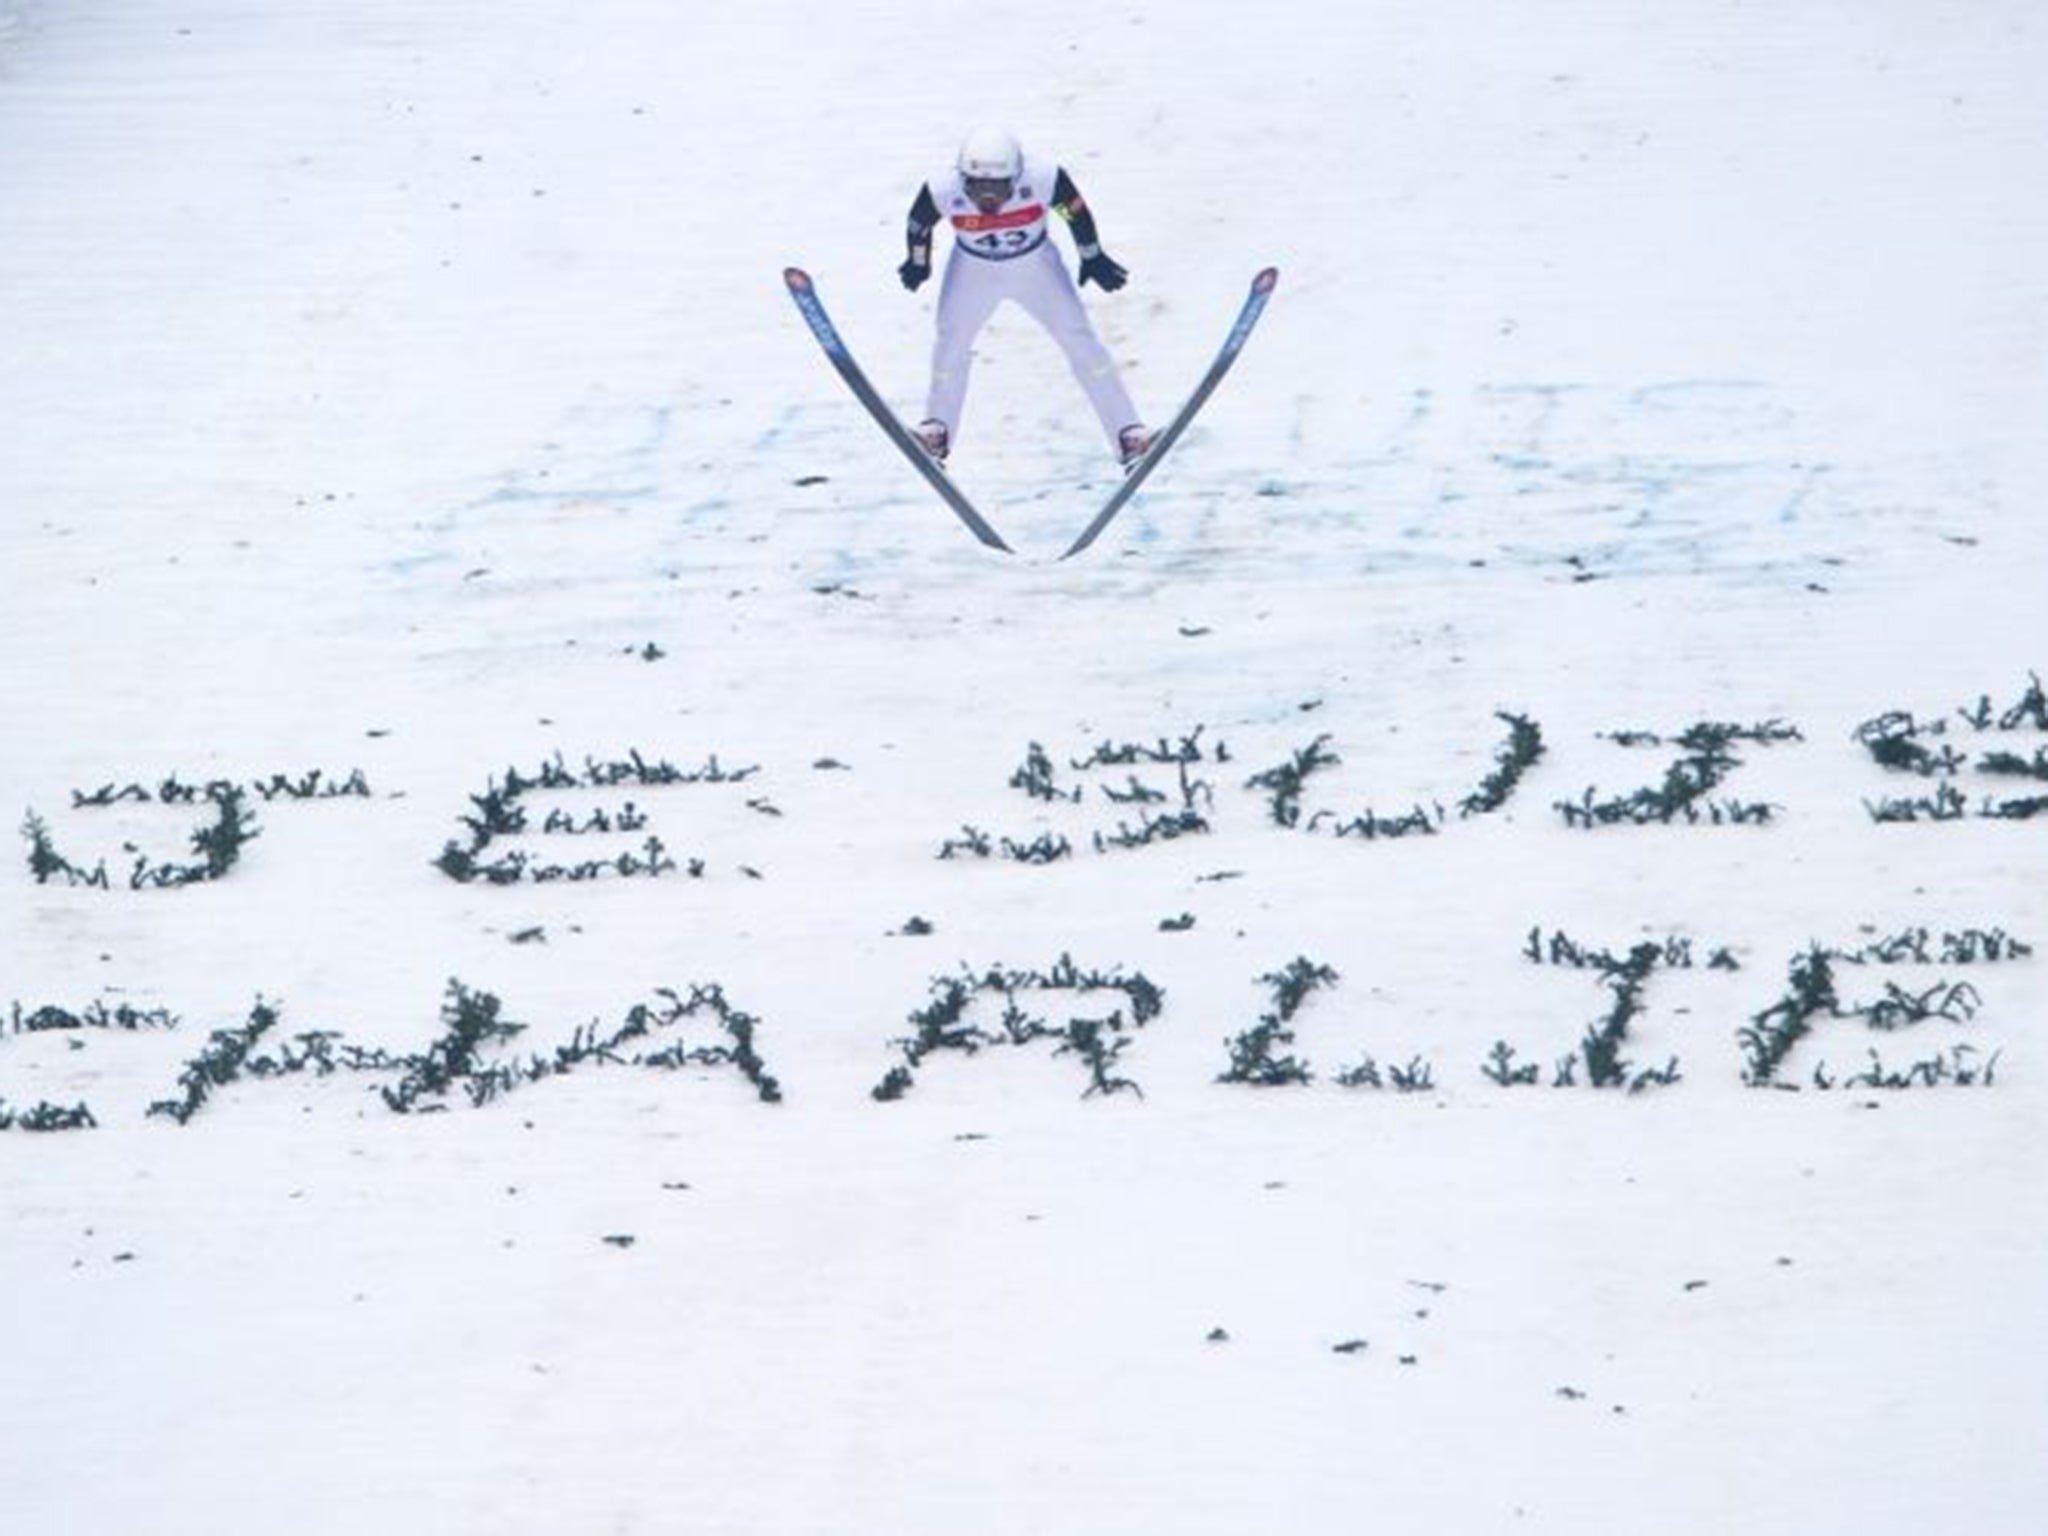 43
JE SUIS
CHARLIE